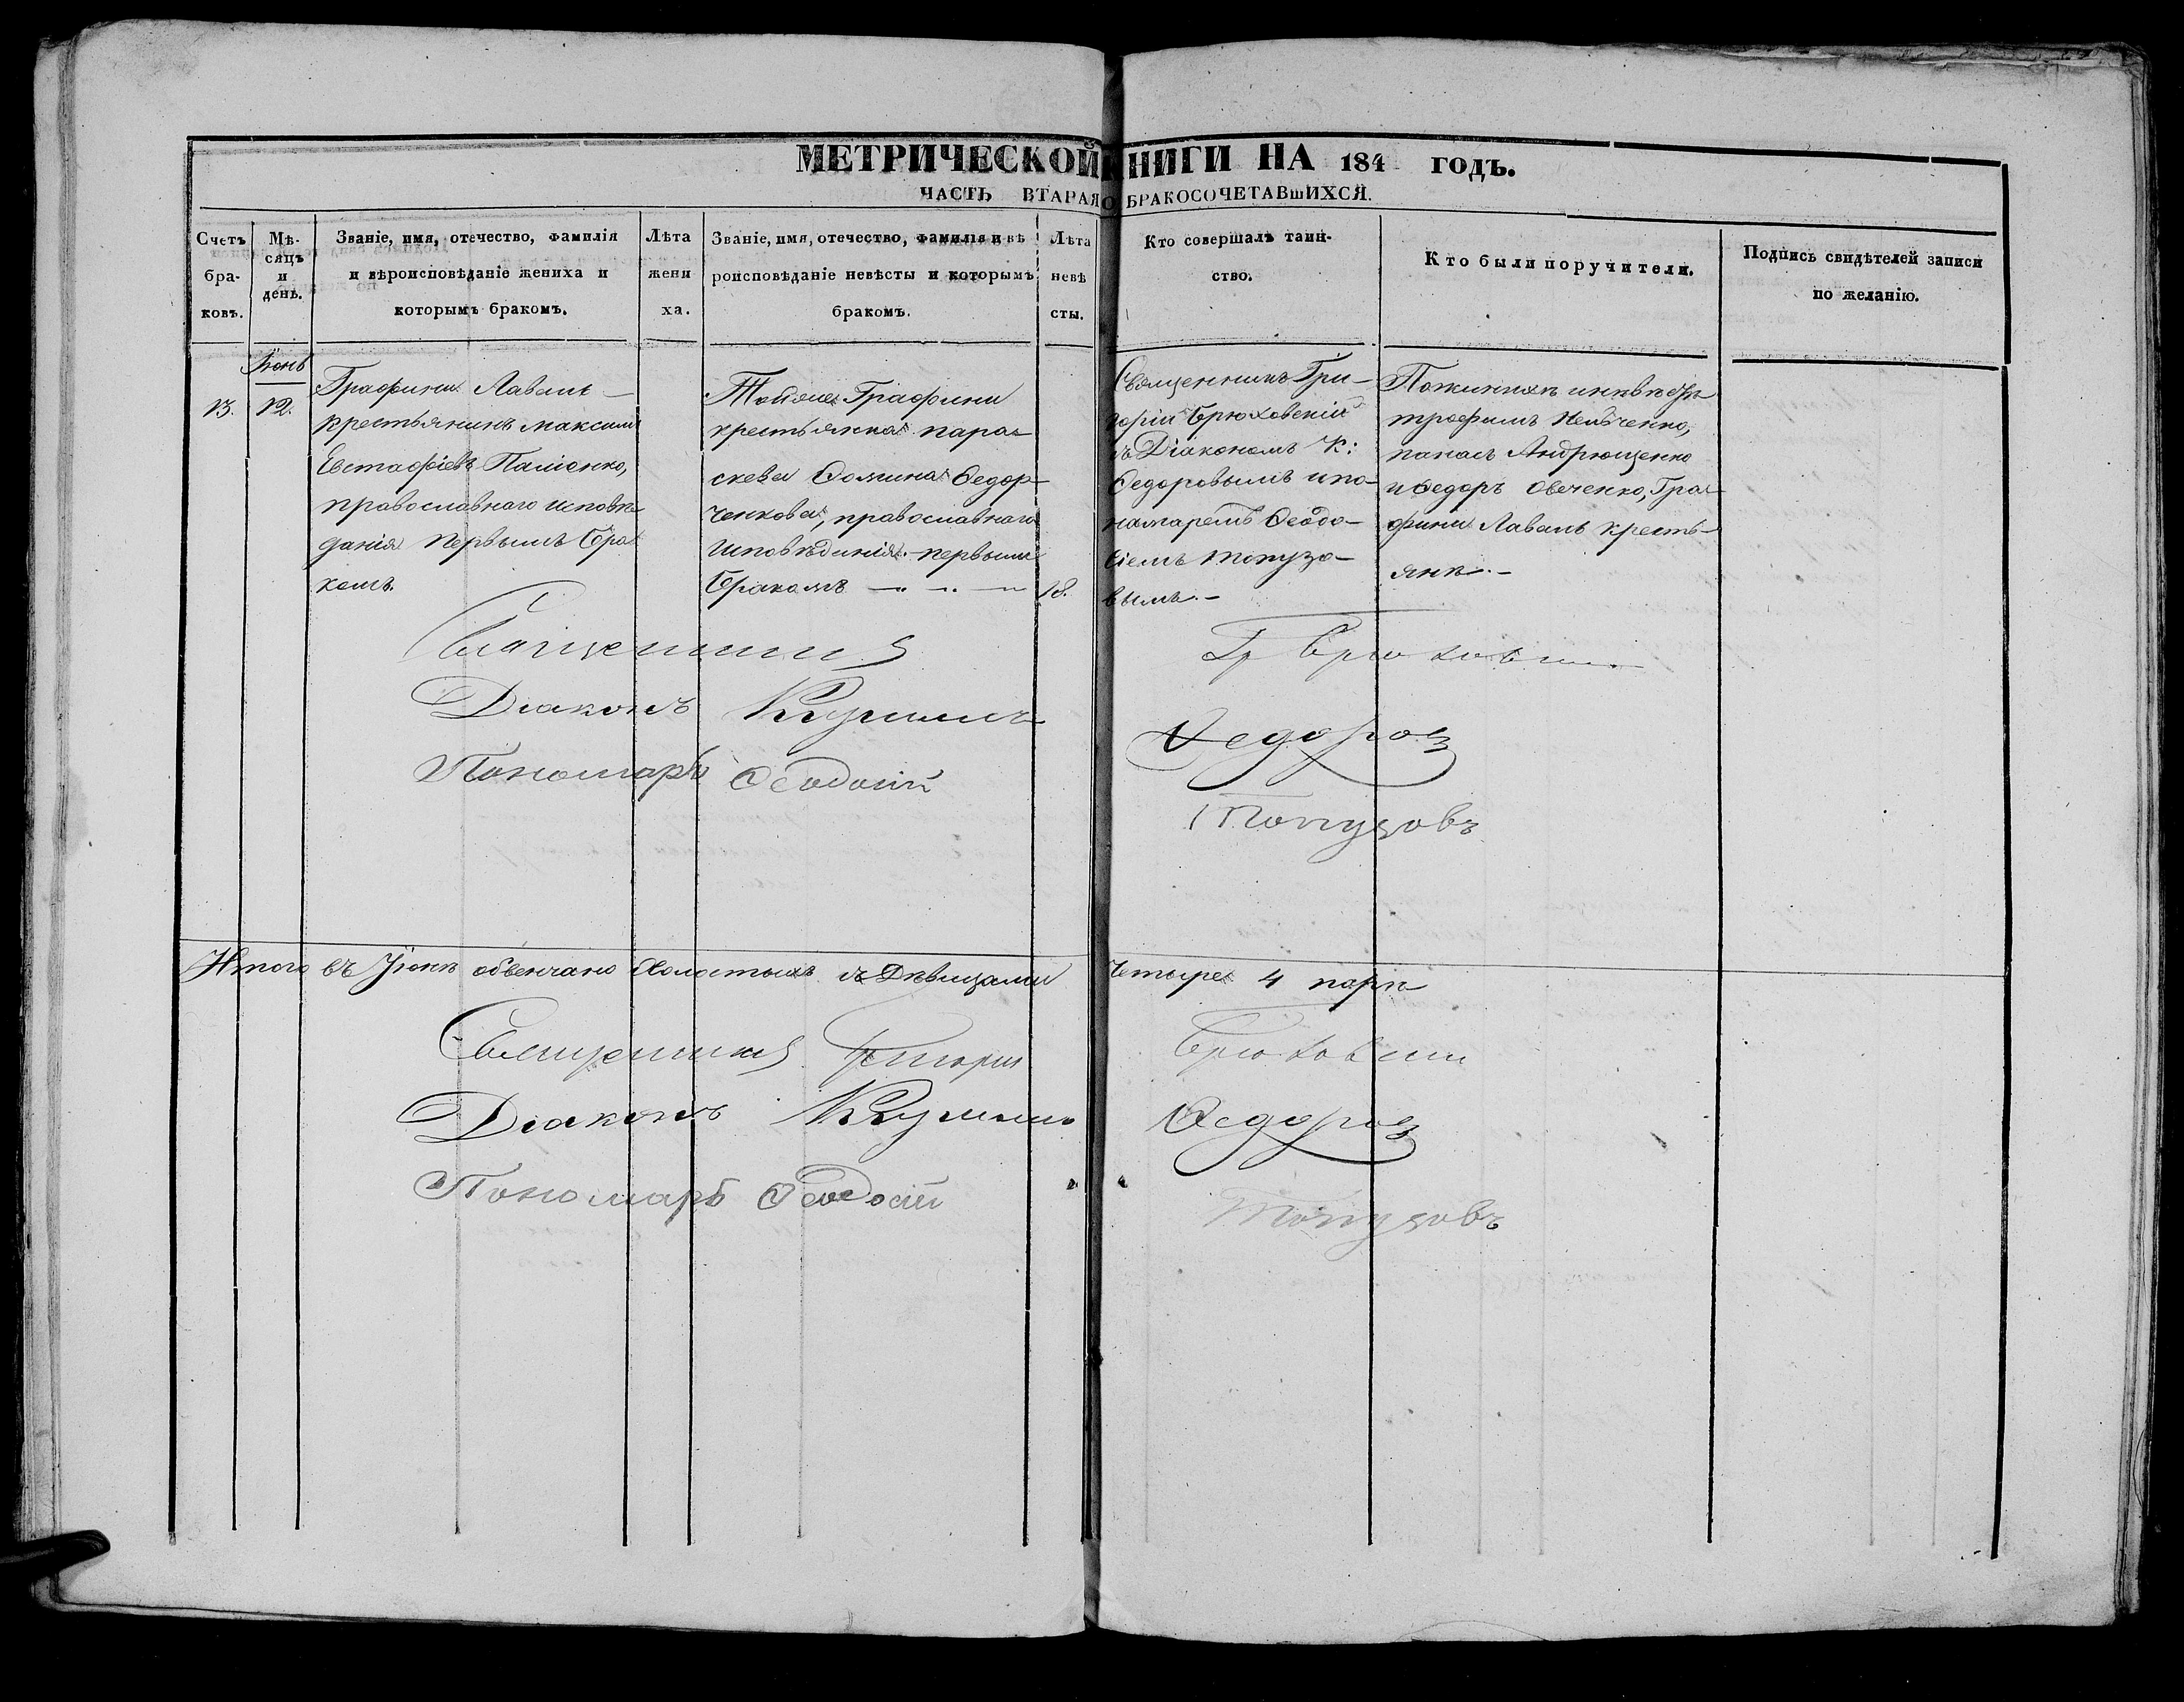 МЕТРИЧЕСКОЙ КНИГИ НА 184 ГОДЪ.
ЧАСТЬ ВТАРАЯ О БРАКОСОЧЕТАВШИХСЯ.
Счетъ браковъ.
Мѣсяцъ и день.
Званіе, имя, отечество, фамилія
и вѣроисповѣданіе жениха и
которымъ бракомъ.
Лѣта
жени
ха.
Званіе, имя, отечество, фамилія и вѣ
роисповѣданіе невѣсты и которымъ
бракомъ.
Лѣта
невѣ
сты.
Кто совершалъ таин-
ство.
Кто были поручители.
Подпись свидѣтелей записи
по желанію.
Іюнь
13.
12.
Графини Лаваль
крестьянинъ Максимъ
Евстафіевъ
православнаго исповѣ
данія первымъ бра
комъ.
Тойже Графини
крестьянка пара
скева Фомина Федор
ченкова, православнаго
исповѣдинія первымъ
бракомъ
18.
Священникъ Гри-
горій Брюховскій
съ Діакономъ К:
Федоровымъ и по-
намаремъ Феодо-
сіемъ Топузо-
вымъ.-
трофимъ
панасъ Андрющенко
и Федоръ Овченко, Гра
фини Лаваль кресть-
янъ.-
Священникъ Гр Брюховскій
Діаконъ Кузьма Федоровъ
Пономарь Феодосій Топузовъ
Итого въ Іюнѣ обвенчано Холостыхъ съ Дѣвицами Четыре 4 пары
Священникъ Григорій Брюховскій
Діаконъ Кузьма Федоровъ
Пономарь Феодосій Топузовъ